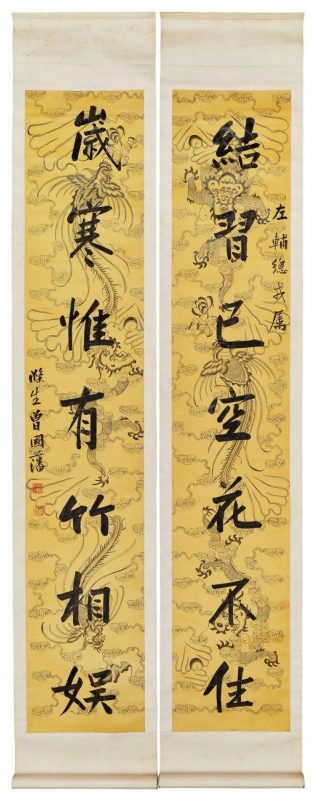 左輔總戎属
結習已空花不住
嵗寒惟有竹相娛
滌生曾國藩